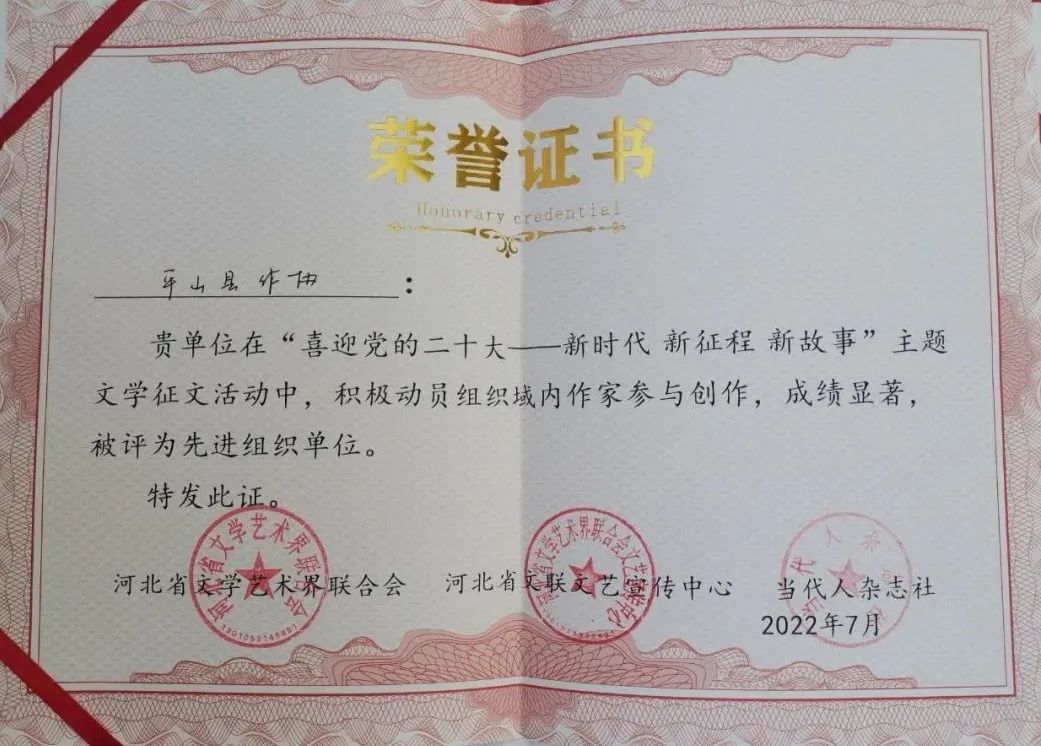 荣誉证书
Honorary credential
平山县作协：
贵单位在“喜迎党的二十大——新时代 新征程 新故事”主题
文学征文活动中，积极动员组织域内作家参与创作，成绩显著，
被评为先进组织单位。
特发此证。
河北省文学艺术界联合会 河北省文联文艺宣传中心 当代人杂志社
2022年7月
河北省文学艺术界联合会
河北省文学艺术界联合会文艺宣传中心
当代人杂志社